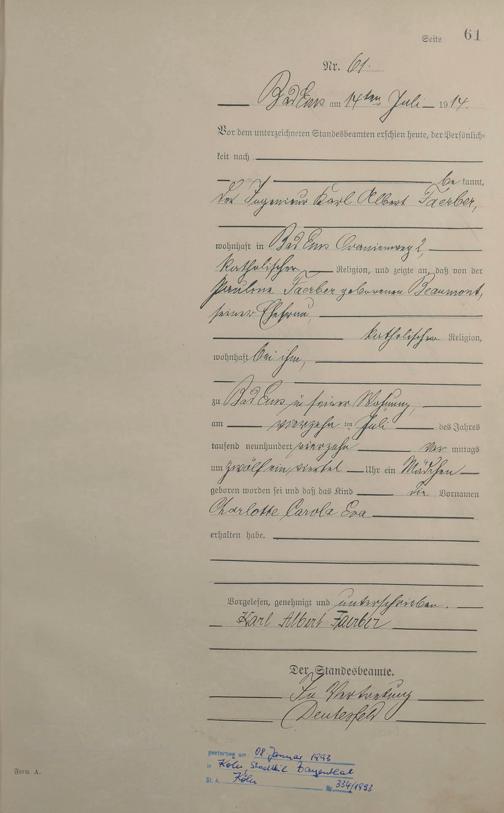 Seite 61
Nr. 61.
Bad Ems am 14ten Juli 1914.
Vor dem unterzeichneten Standesbeamten erschien heute, der Persönlich-
keit nach
be kannt,
der Ingenieur Karl Albert Faerber,
wohnhaft in Bad Ems Oranienweg 2,
katholischer Religion, und zeigte an, daß von der
Pauline Faerber geborenen Beaumont,
seiner Ehefrau,
katholischer Religion,
wohnhaft bei ihm,
zu Bad Ems in seiner Wohnung,
am vierzehn ten Juli des Jahres
tausend neunhundert vierzehn Vor mittags
um zwölf ein viertel Uhr ein Mädchen
geboren worden sei und daß das Kind die Vornamen
Charlotte Carola Eva
erhalten habe.
Vorgelesen, genehmigt und unterschrieben.
Karl Albert Faerber
Der Standesbeamte.
In Vertretung
gestorben am 08. Januar 1993
in Köln, Stadtteil Bayenthal
St. A. Köln Nr. 334/1993
Form A.